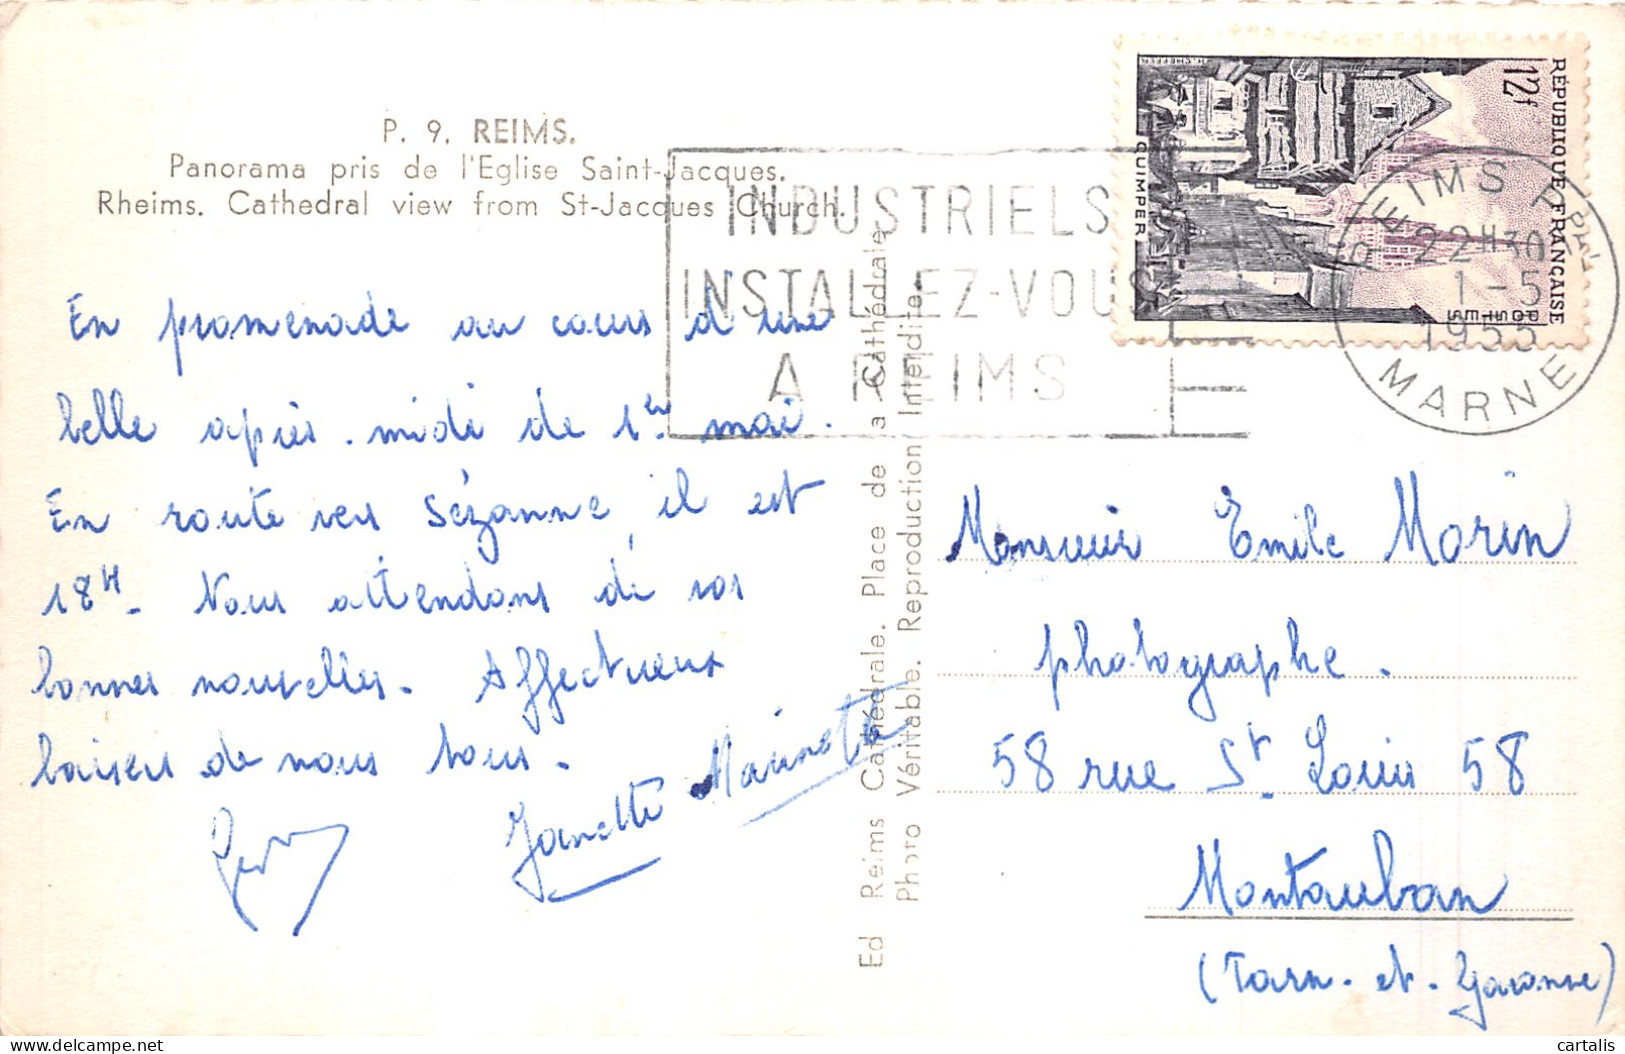 P. 9. REIMS.
Panorama pris de l'Eglise Saint-Jacques.
Rheims. Cathedral view from St-Jacques Church.
En promenade au cours d'une
belle après-midi de 1er mai.
En route vers Sézanne il est
18H. Nous attendons de vos
bonnes nouvelles. Affectueux
baisers de nous tous.
Janette Marinette
Ed Reims Cathédrale. Place de a Cathédrale
Photo Véritable. Reproduction Interdite
INDUSTRIELS
INSTALLEZ-VOUS
A REIMS
RÉPUBLIQUE FRANÇAISE
12f
POSTES
QUIMPER
REIMS RPAL
22H30
1-5
1955
MARNE
Monsieur Emile Morin
photographe.
58 rue St. Louis 58
Montauban
(Tarn-et-Garonne)
cartalis